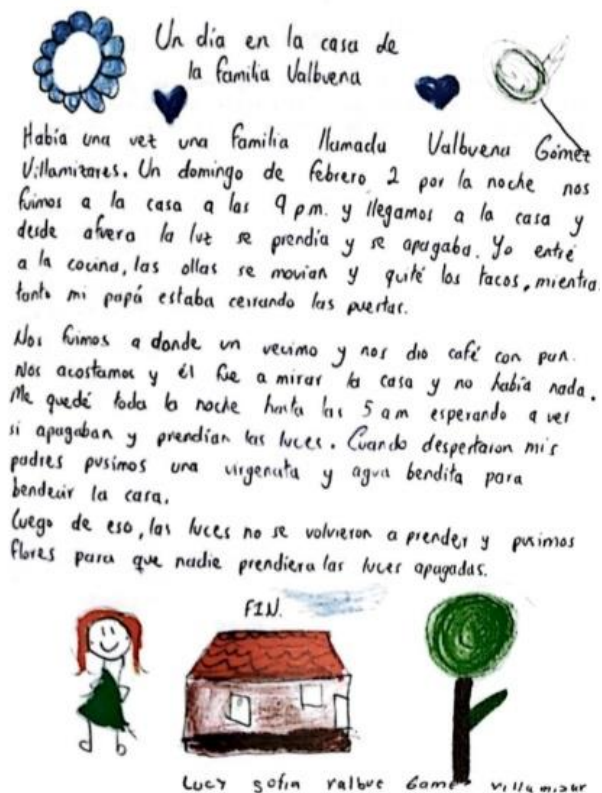 Un día en la casa de
la familia Valbuena
Había una vez una familia llamada Valbuena Gómez
Villamizares. Un domingo de febrero 2 por la noche nos
fuimos a la casa a las 9 p.m. y llegamos a la casa y
desde afuera la luz se prendía y se apagaba. Yo entré
a la cocina, las ollas se movían y quité los tacos, mientras
tanto mi papá estaba cerrando las puertas.
Nos fuimos a donde un vecimo y nos dio café con pan.
Nos acostamos y él fue a mirar la casa y no había nada.
Me quedé toda la noche hasta las 5 am esperando a ver
si apagaban y prendían las luces. Cuando despertaron mis
padres pusimos una virgencita y agua bendita para
bendecir la casa.
Luego de eso, las luces no se volvieron a prender y pusimos
flores para que nadie prendiera las luces apagadas.
FIN.
Lucy sofia valbue Gamez villamizar